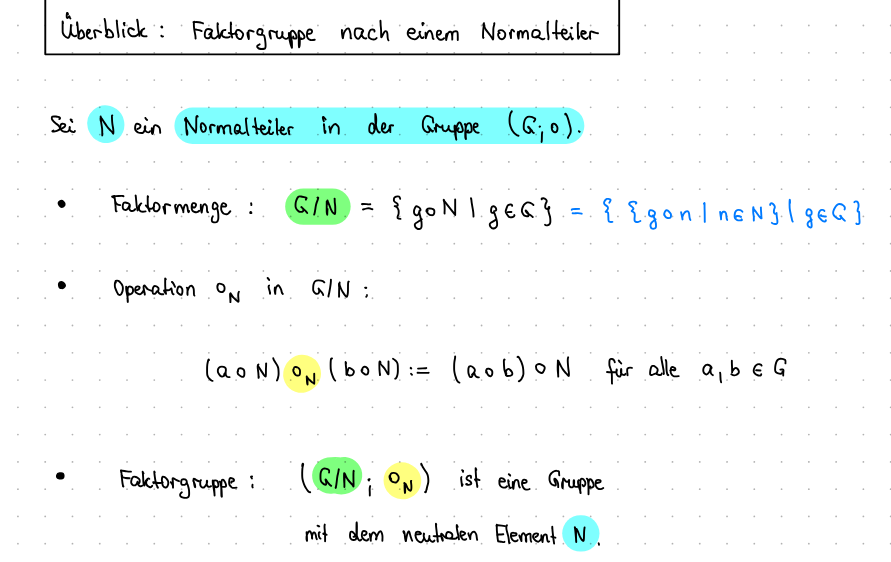 Überblick : Faktorgruppe nach einem Normalteiler
Sei N ein Normalteiler in der Gruppe (G; ∘).
• Faktormenge : G/N = { g∘N | g∈G } = { {g∘n | n∈N} | g∈G }
• Operation ∘_N in G/N :
(a∘N) ∘_N (b∘N) := (a∘b)∘N für alle a, b ∈ G
• Faktorgruppe : (G/N ; ∘_N) ist eine Gruppe
mit dem neutralen Element N.